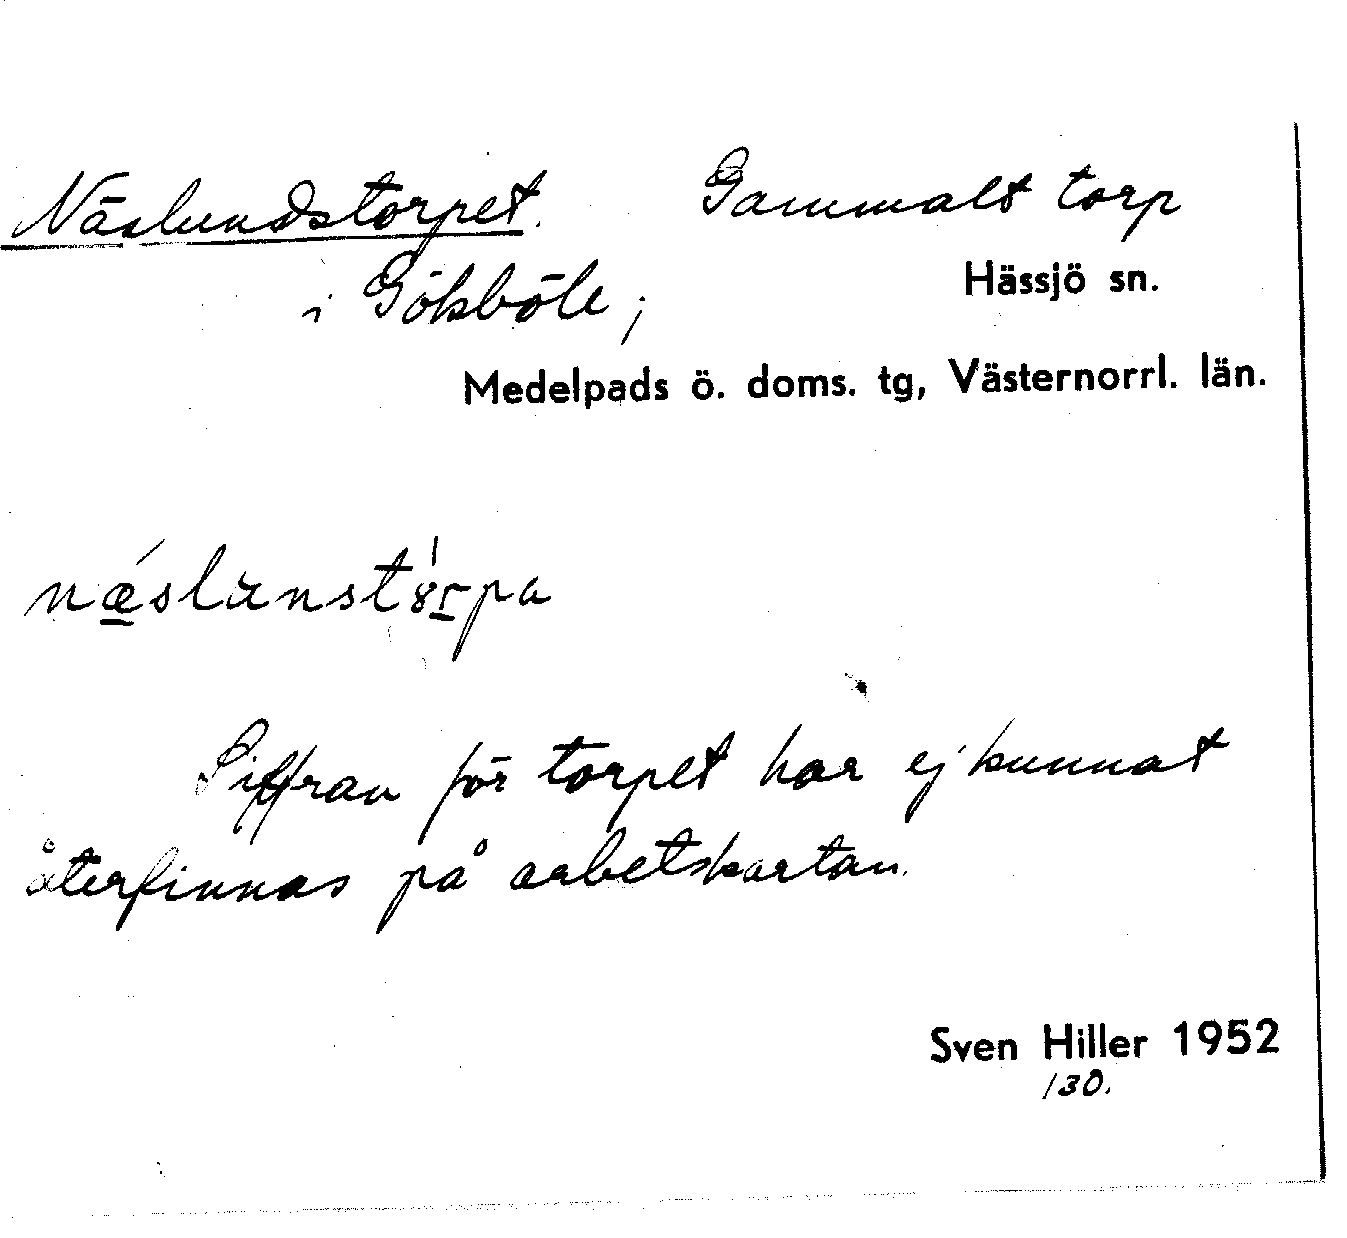 Näslundstorpet. Gammalt torp
Hässjö sn.
i Gökböle;
Medelpads ö. doms. tg, Västernorrl. län.
Siffran för torpet har ej kunnat
återfinnas på arbetskartan.
Sven Hiller 1952
130.